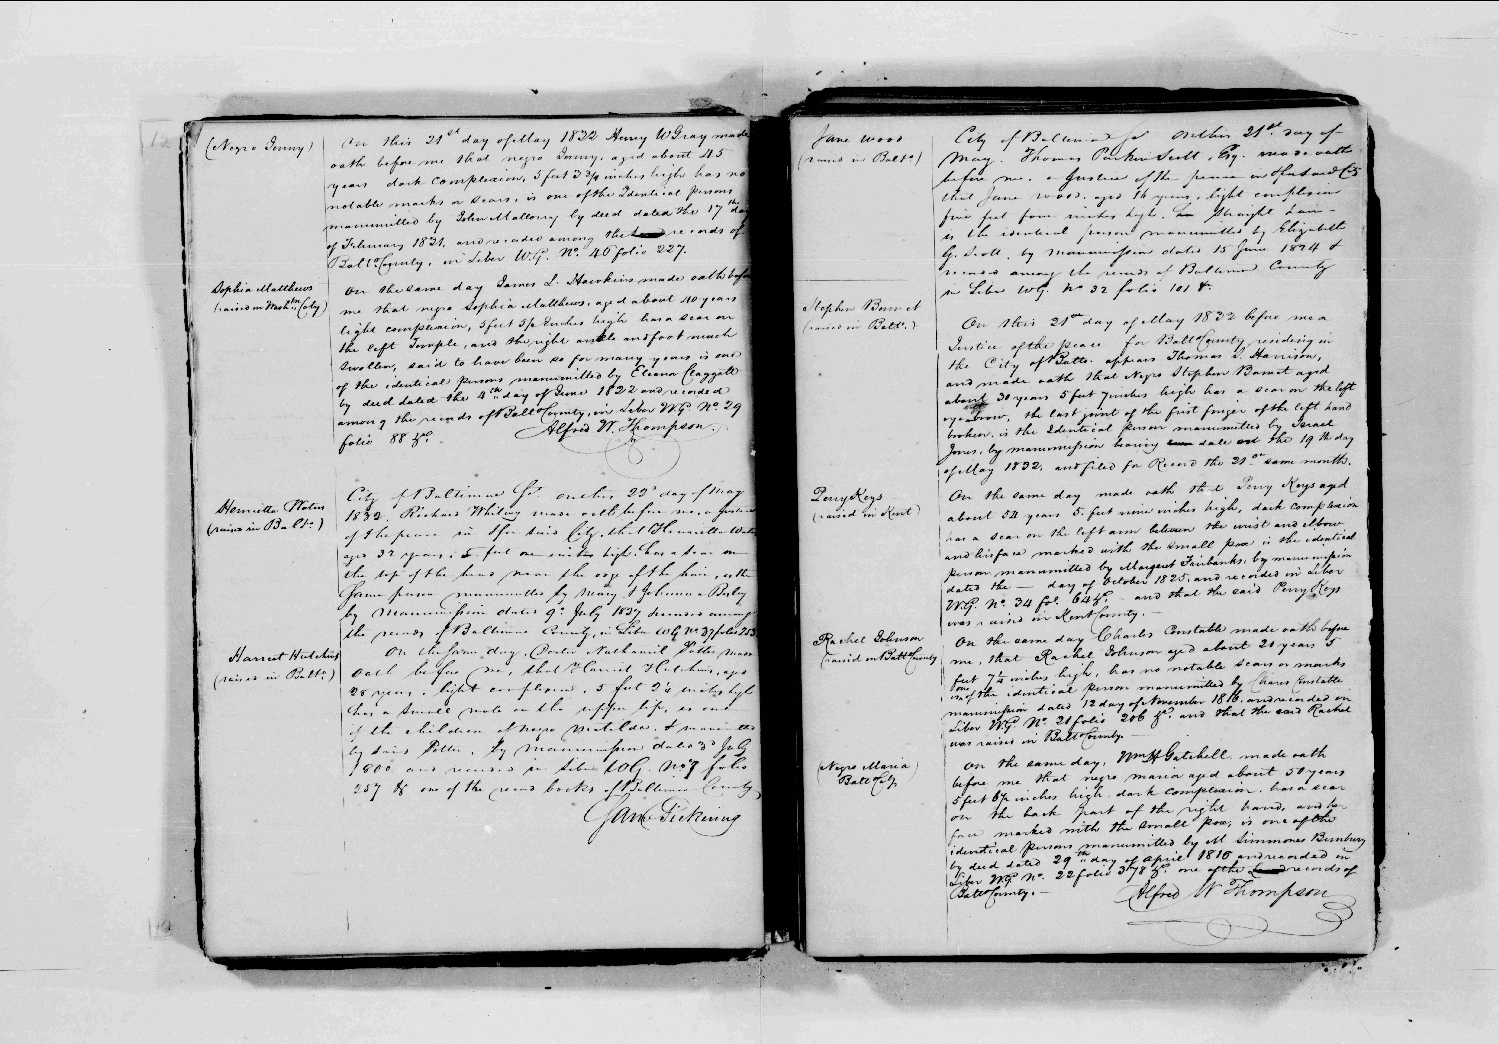 (Negro Jenny)
On this 21st day of May 1832 Henry W Gray made
oath before me that negro Jenny, aged about 45
years dark complexion, 5 feet 3 3/4 inches high has no
notable marks or scars, is one of the Identical persons
manumitted by John Mallorry by deed dated the 17th day
of February 1821, and recorded among the records of
Balto County, in Liber W.G. No. 40 folio 227.
Sophia Matthews
(raised in Washtn City)
On the same day James L. Hawkins made oath before
me that negro Sophia Matthews, aged about 40 years
light complexion, 5 feet 5 1/2 Inches high has a scar on
the left Temple, and the right ankle and foot much
swollen, said to have been so for many years is one
of the identical persons manumitted by Eleana Claggett
by deed dated the 4th day of June 1822 and recorded
among the records of Balto County, in Liber W.G. No. 29
folio 88 &c.
Alfred W. Thompson.
Henrietta Waters
(raised in Balto)
City of Baltimore Sc. on this 22d day of May
1832, Richard Whiting made oath before me, a Justice
of the peace in & for said City, that Henrietta Waters
aged 32 years, 5 feet one inches high, has a scar on
the top of the head near the edge of the hair, is the
same person manumitted by Mary & Johanna Busby
by Manumission dated 9th July 1827 & recorded among
the records of Baltimore County, in Liber WG No 37 folio 253
Harriet Hutchins
(raised in Balto)
On the same day, Doctor Nathaniel Potter made
oath before me, that Harriet Hutchins, aged
28 years, light complexion, 5 feet 2 1/4 inches high
has a small mole on the upper lip, is one
of the children of negro Matilda, & manumitted
by said Potter, by manumission dated 3d July
1800 and recorded in Liber WG. No 9 folio
257 &c one of the record books of Baltimore County
James Pickering
Jane Wood
(raised in Balto)
City of Baltimore Sc on this 21st day of
May. Thomas Parkin Scott, Esq. made oath
before me, a Justice of the peace in & for said City
that Jane Wood, aged 16 years, light complexion
five feet four inches high, straight hair
is the identical person manumitted by Elizabeth
G. Scott, by manumission dated 15 June 1824 &
recorded among the records of Baltimore County
in Liber WG. No 32 folio 101 &.
Stephen Barnet
(raised in Balto.)
On this 21st day of May 1832 before me a
Justice of the peace for Balto County residing in
the City of Balto. appears Thomas S. Harrison,
and made oath that Negro Stephen Barnet aged
about 30 years 5 feet 7 inches high has a scar on the left
eyebrow, the last joint of the first finger of the left hand
broken, is the Identical person manumitted by Israel
Jones, by manumission bearing date the 19th day
of May 1832, and filed for Record the 21st same month.
Perry Keys
(raised in Kent)
On the same day made oath that Perry Keys aged
about 54 years 5 feet nine inches high, dark complexion
has a scar on the left arm between the wrist and elbow
and his face marked with the small pox is the identical
person manumitted by Margaret Fairbanks, by manumission
dated the — day of October 1825, and recorded in Liber
W.G. No. 34 fol. 64 &c. and that the said Perry Keys
was raised in Kent County. —
Rachel Johnson
(raised in Balto County
On the same day Charles Constable made oath before
me, that Rachel Johnson aged about 20 years 5
feet 7 1/4 inches high, has no notable scars or marks
one of the identical person manumitted by Charles Constable
manumission dated 12 day of November 1816, and recorded on
Liber W.G. No. 20 folio 206 &c. and that the said Rachel
was raised in Balto County. —
(Negro Maria)
Balto City
On the same day, Wm H Gatchell made oath
before me that negro maria aged about 50 years
5 feet 6 1/2 inches high, dark complexion, has a scar
on the back part of the right hand, and her
face marked with the small pox, is one of the
identical persons manumitted by M Simmones Bunbury
by deed dated 29th day of april 1816 and recorded in
Liber W.G. No. 22 folio 378 &c. one of the records of
Balto County. —
Alfred W Thompson